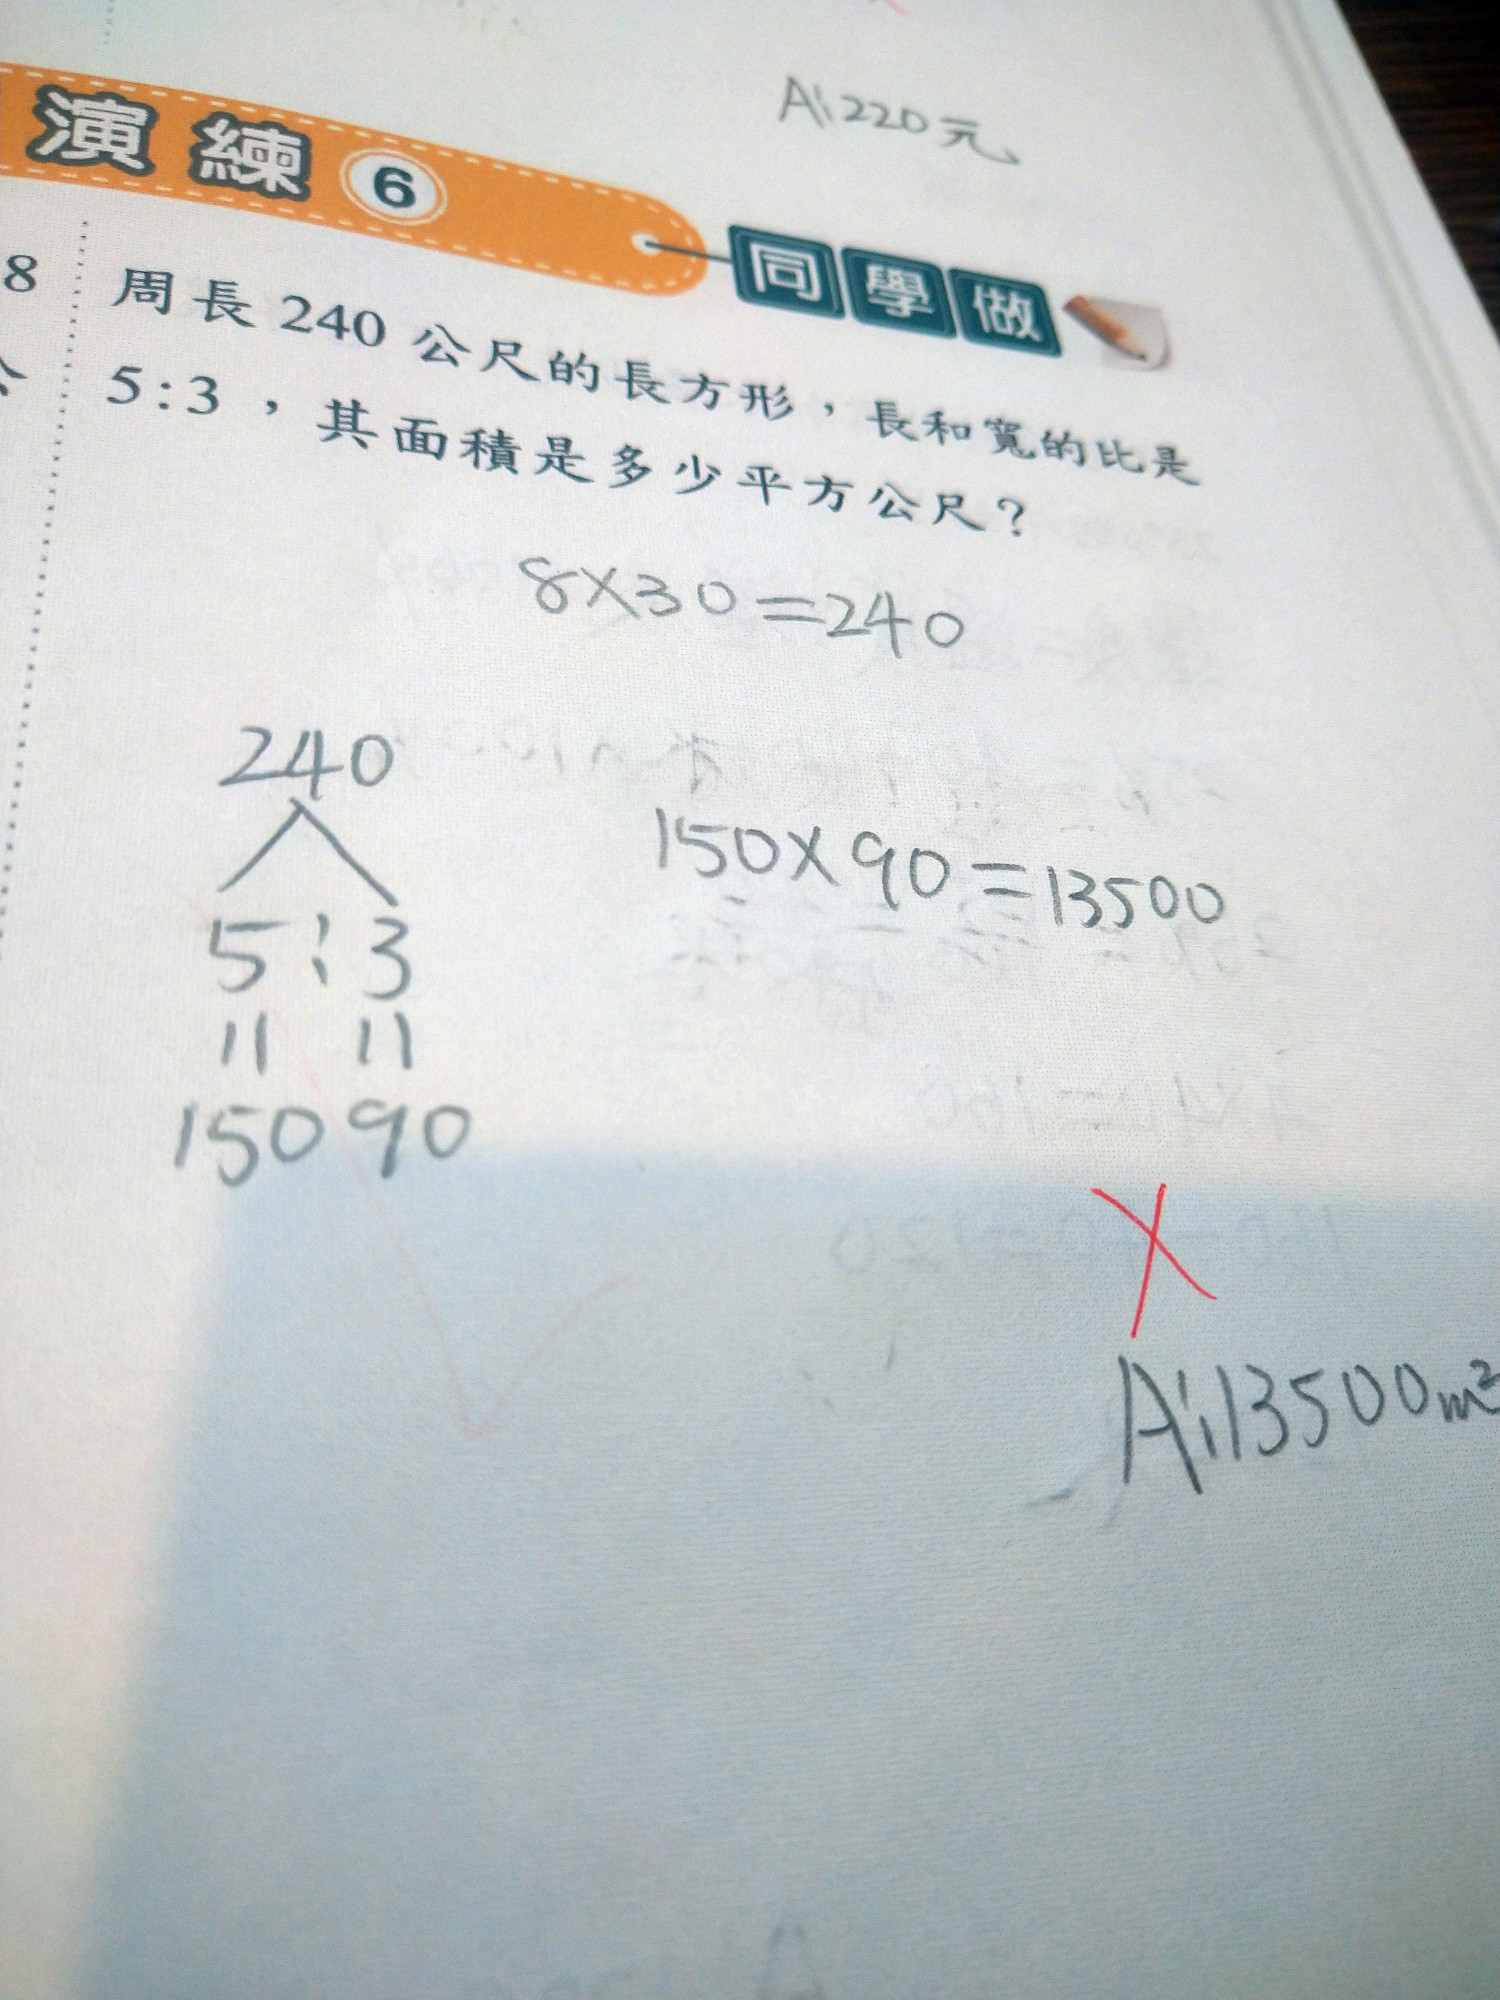 A:220元
演練6 同學做
8
周長240公尺的長方形，長和寬的比是
5:3，其面積是多少平方公尺？
8×30=240
240
150×90=13500
5:3
11 11
150 90
A:13500m²